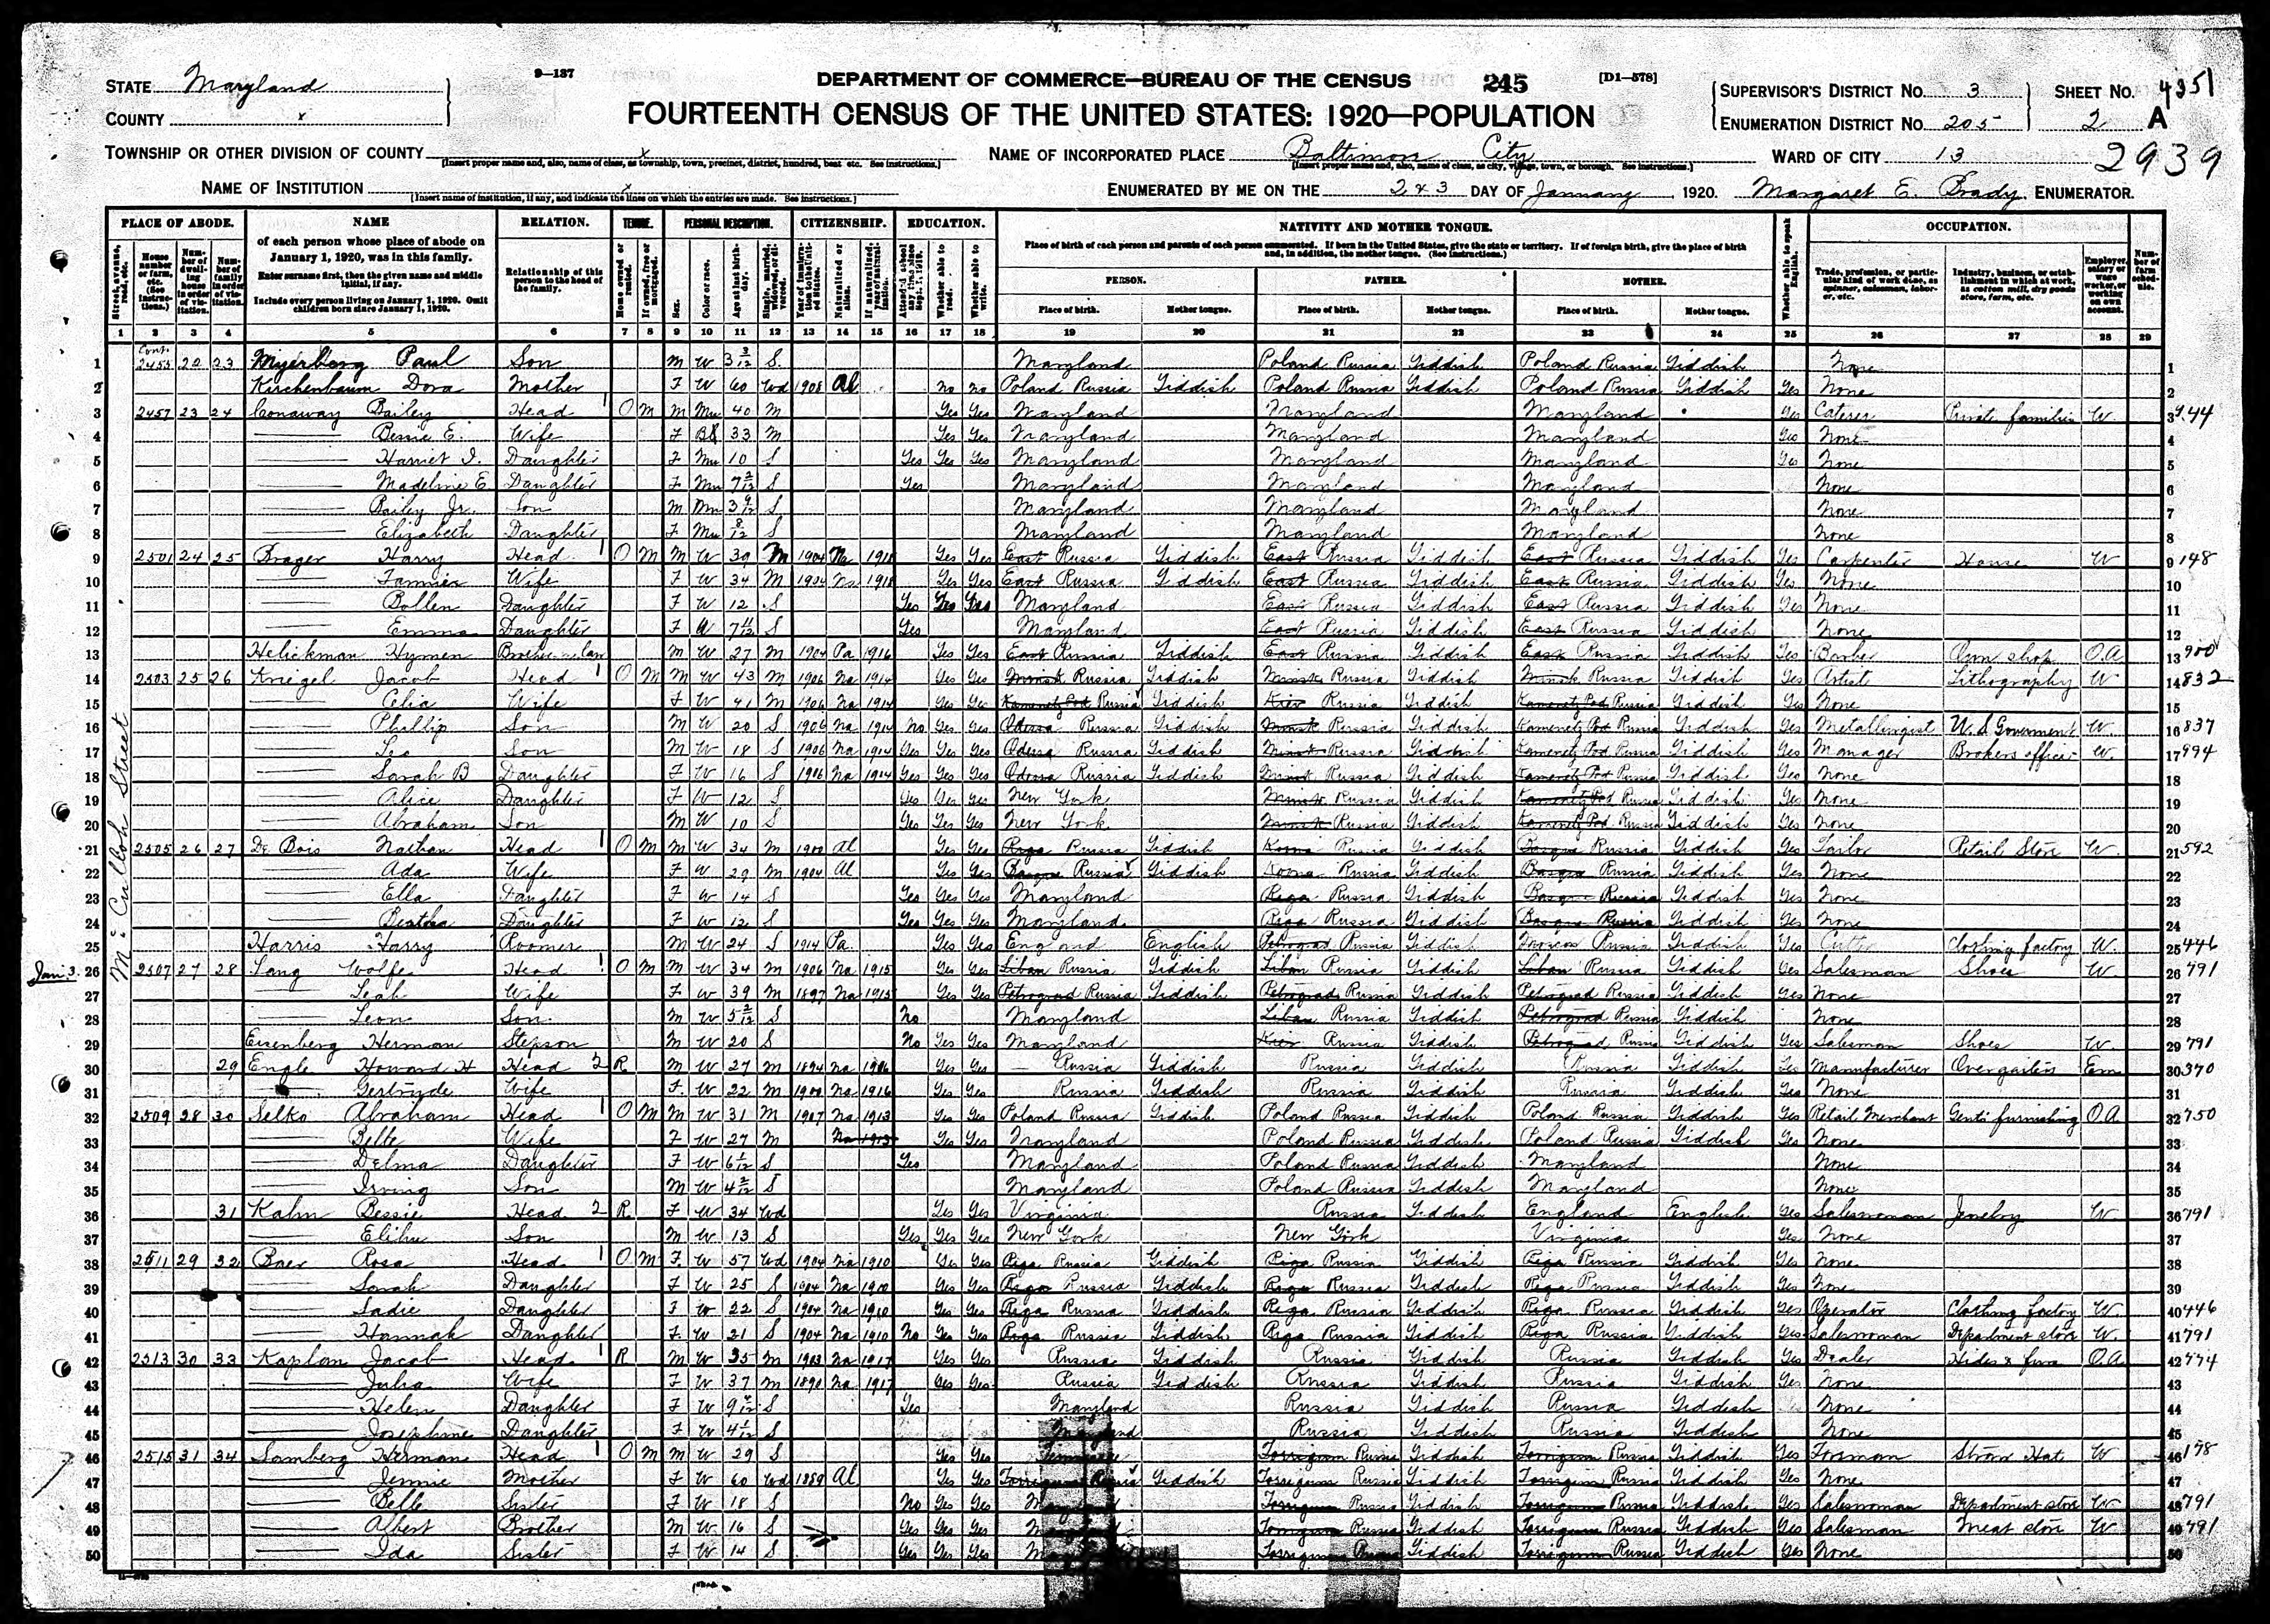 9—137
DEPARTMENT OF COMMERCE—BUREAU OF THE CENSUS
245
[D1—578]
4351
STATE Maryland
COUNTY x
FOURTEENTH CENSUS OF THE UNITED STATES: 1920—POPULATION
SUPERVISOR'S DISTRICT No. 3
SHEET No.
ENUMERATION DISTRICT No. 205
2 A
TOWNSHIP OR OTHER DIVISION OF COUNTY x
[Insert proper name and, also, name of class, as township, town, precinct, district, hundred, beat etc. See instructions.]
NAME OF INCORPORATED PLACE Baltimore City
[Insert proper name and, also, name of class, as city, village, town, or borough. See instructions.]
WARD OF CITY 13
2939
NAME OF INSTITUTION x
[Insert name of institution, if any, and indicate the lines on which the entries are made. See instructions.]
ENUMERATED BY ME ON THE 2 & 3 DAY OF January, 1920. Margaret E. Brady, ENUMERATOR.
PLACE OF ABODE. NAME RELATION. TENURE. PERSONAL DESCRIPTION. CITIZENSHIP. EDUCATION. NATIVITY AND MOTHER TONGUE. OCCUPATION.
of each person whose place of abode on January 1, 1920, was in this family.
Enter surname first, then the given name and middle initial, if any.
Include every person living on January 1, 1920. Omit children born since January 1, 1920.
Relationship of this person to the head of the family.
Place of birth of each person and parents of each person enumerated. If born in the United States, give the state or territory. If of foreign birth, give the place of birth and, in addition, the mother tongue. (See instructions.)
PERSON. FATHER. MOTHER.
Place of birth. Mother tongue. Place of birth. Mother tongue. Place of birth. Mother tongue.
Whether able to speak English.
1 2 3 4 5 6 7 8 9 10 11 12 13 14 15 16 17 18 19 20 21 22 23 24 25 26 27 28 29
McCulloh Street
Cont.
1 2455 22 23 Myerberg Paul Son M W 3 3/12 S Maryland Poland Russia Yiddish Poland Russia Yiddish None 1
2 Kirchenbaum Dora Mother F W 60 Wd 1908 Al No No Poland Russia Yiddish Poland Russia Yiddish Poland Russia Yiddish Yes None 2
3 2457 23 24 Conaway Bailey Head 1 O M M Mu 40 M Yes Yes Maryland Maryland Maryland Yes Caterer Private families W 3 744
4 Bessie E. Wife F B 33 M Yes Yes Maryland Maryland Maryland Yes None 4
5 Harriet I. Daughter F Mu 10 S Yes Yes Yes Maryland Maryland Maryland Yes None 5
6 Madeline E Daughter F Mu 7 2/12 S Yes Maryland Maryland Maryland None 6
7 Bailey Jr. Son M Mu 3 9/12 S Maryland Maryland Maryland None 7
8 Elizabeth Daughter F Mu 8/12 S Maryland Maryland Maryland None 8
9 2501 24 25 Brager Harry Head 1 O M M W 39 M 1904 Na 1918 Yes Yes East Russia Yiddish East Russia Yiddish East Russia Yiddish Yes Carpenter House W 9 148
10 Fannie Wife F W 34 M 1904 Na 1918 Yes Yes East Russia Yiddish East Russia Yiddish East Russia Yiddish Yes None 10
11 Bollen Daughter F W 12 S Yes Yes Yes Maryland East Russia Yiddish East Russia Yiddish Yes None 11
12 Emma Daughter F W 7 11/12 S Yes Maryland East Russia Yiddish East Russia Yiddish None 12
13 Helickman Hymen Brother in law M W 27 M 1904 Pa 1916 Yes Yes East Russia Yiddish East Russia Yiddish East Russia Yiddish Yes Barber Own shop O A 13 900
14 2503 25 26 Kriegel Jacob Head 1 O M M W 43 M 1906 Na 1914 Yes Yes Minsk Russia Yiddish Minsk Russia Yiddish Minsk Russia Yiddish Yes Artist Lithography W 14 832
15 Celia Wife F W 41 M 1906 Na 1914 Yes Yes Kamenetz Pod Russia Yiddish Kiev Russia Yiddish Kamenetz Pod Russia Yiddish Yes None 15
16 Phillip Son M W 20 S 1906 Na 1914 No Yes Yes Odessa Russia Yiddish Minsk Russia Yiddish Kamenetz Pod Russia Yiddish Yes Metallurgist U. S Goverment W 16 837
17 Leo Son M W 18 S 1906 Na 1914 Yes Yes Yes Odessa Russia Yiddish Minsk Russia Yiddish Kamenetz Pod Russia Yiddish Yes Manager Brokers office W. 17 994
18 Sarah B Daughter F W 16 S 1906 Na 1914 Yes Yes Yes Odessa Russia Yiddish Minsk Russia Yiddish Kamenetz Pod Russia Yiddish Yes None 18
19 Alice Daughter F W 12 S Yes Yes Yes New York Minsk Russia Yiddish Kamenetz Pod Russia Yiddish Yes None 19
20 Abraham Son M W 10 S Yes Yes Yes New York Minsk Russia Yiddish Kamenetz Pod Russia Yiddish Yes None 20
21 2505 26 27 De Bois Nathan Head 1 O M M W 34 M 1900 Al Yes Yes Riga Russia Yiddish Russia Yiddish Russia Yiddish Yes Tailor Retail Store W 21 592
22 Ada Wife F W 29 M 1904 Al Yes Yes Russia Yiddish Russia Yiddish Russia Yiddish Yes None 22
23 Ella Daughter F W 14 S Yes Yes Yes Maryland Riga Russia Yiddish Russia Yiddish Yes None 23
24 Bertha Daughter F W 12 S Yes Yes Yes Maryland Riga Russia Yiddish Russia Yiddish Yes None 24
25 Harris Harry Roomer M W 24 S 1914 Pa Yes Yes England English Petrograd Russia Yiddish Russia Yiddish Yes Cutter Clothing factory W. 25 446
Jan 3. 26 2507 27 28 Lang Wolfe Head 1 O M M W 34 M 1906 Na 1915 Yes Yes Libau Russia Yiddish Libau Russia Yiddish Libau Russia Yiddish Yes Salesman Shoes W 26 791
27 Leah Wife F W 39 M 1897 Na 1915 Yes Yes Petrograd Russia Yiddish Petrograd Russia Yiddish Petrograd Russia Yiddish Yes None 27
28 Leon Son M W 5 2/12 S No Maryland Libau Russia Yiddish Petrograd Russia Yiddish None 28
29 Eisenberg Herman Stepson M W 20 S No Yes Yes Maryland Kiev Russia Yiddish Petrograd Russia Yiddish Yes Salesman Shoes W. 29 791
30 29 Engle Howard H Head 2 R M W 27 M 1894 Na 1906 Yes Yes Russia Yiddish Russia Yiddish Russia Yiddish Yes Manufacturer Overgaiters Em 30 370
31 Gertrude Wife F W 22 M 1900 Na 1916 Yes Yes Russia Yiddish Russia Yiddish Russia Yiddish Yes None 31
32 2509 28 30 Selko Abraham Head 1 O M M W 31 M 1907 Na 1913 Yes Yes Poland Russia Yiddish Poland Russia Yiddish Poland Russia Yiddish Yes Retail Merchant Gents furnishing O A 32 750
33 Belle Wife F W 27 M Na 1913 Yes Yes Maryland Poland Russia Yiddish Poland Russia Yiddish Yes None 33
34 Delma Daughter F W 6 1/12 S Yes Maryland Poland Russia Yiddish Maryland None 34
35 Irving Son M W 4 2/12 S Maryland Poland Russia Yiddish Maryland None 35
36 31 Kahn Bessie Head 2 R F W 34 Wd Yes Yes Virginia Russia Yiddish England English Yes Saleswoman Jewelry W 36 791
37 Elihu Son M W 13 S Yes Yes Yes New York New York Virginia Yes None 37
38 2511 29 32 Baer Rosa Head 1 O M F W 57 Wd 1904 Na 1910 Yes Yes Riga Russia Yiddish Riga Russia Yiddish Riga Russia Yiddish Yes None 38
39 Sarah Daughter F W 25 S 1904 Na 1910 Yes Yes Riga Russia Yiddish Riga Russia Yiddish Riga Russia Yiddish Yes None 39
40 Sadie Daughter F W 22 S 1904 Na 1910 Yes Yes Riga Russia Yiddish Riga Russia Yiddish Riga Russia Yiddish Yes Operator Clothing factory W. 40 446
41 Hannah Daughter F W 21 S 1904 Na 1910 No Yes Yes Riga Russia Yiddish Riga Russia Yiddish Riga Russia Yiddish Yes Saleswoman Department store W. 41 791
42 2513 30 33 Kaplan Jacob Head 1 R M W 35 M 1903 Na 1917 Yes Yes Russia Yiddish Russia Yiddish Russia Yiddish Yes Dealer Hides & furs O A 42 774
43 Julia Wife F W 37 M 1890 Na 1917 Yes Yes Russia Yiddish Russia Yiddish Russia Yiddish Yes None 43
44 Helen Daughter F W 9 S Yes Maryland Russia Yiddish Russia Yiddish None 44
45 Josephine Daughter F W 4 1/12 S Maryland Russia Yiddish Russia Yiddish None 45
46 2515 31 34 Samberg Herman Head 1 O M M W 29 S Yes Yes Russia Yiddish Russia Yiddish Yes Forman Straw Hat W 46 178
47 Jennie Mother F W 60 Wd 1889 Al Yes Yes Russia Yiddish Russia Yiddish Russia Yiddish Yes None 47
48 Belle Sister F W 18 S No Yes Yes Russia Yiddish Russia Yiddish Yes Saleswoman Department store W 48 791
49 Albert Brother M W 16 S Yes Yes Yes Russia Yiddish Russia Yiddish Yes Salesman Meat store W 49 791
50 Ida Sister F W 14 S Yes Yes Yes Russia Yiddish Russia Yiddish Yes None 50